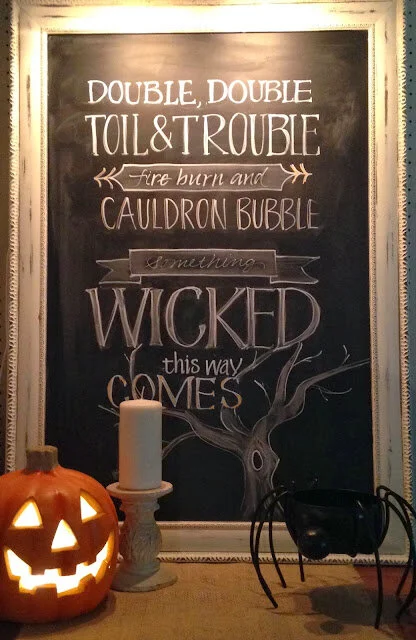 DOUBLE, DOUBLE
TOIL & TROUBLE
fire burn and
CAULDRON BUBBLE
something
WICKED
this way
COMES